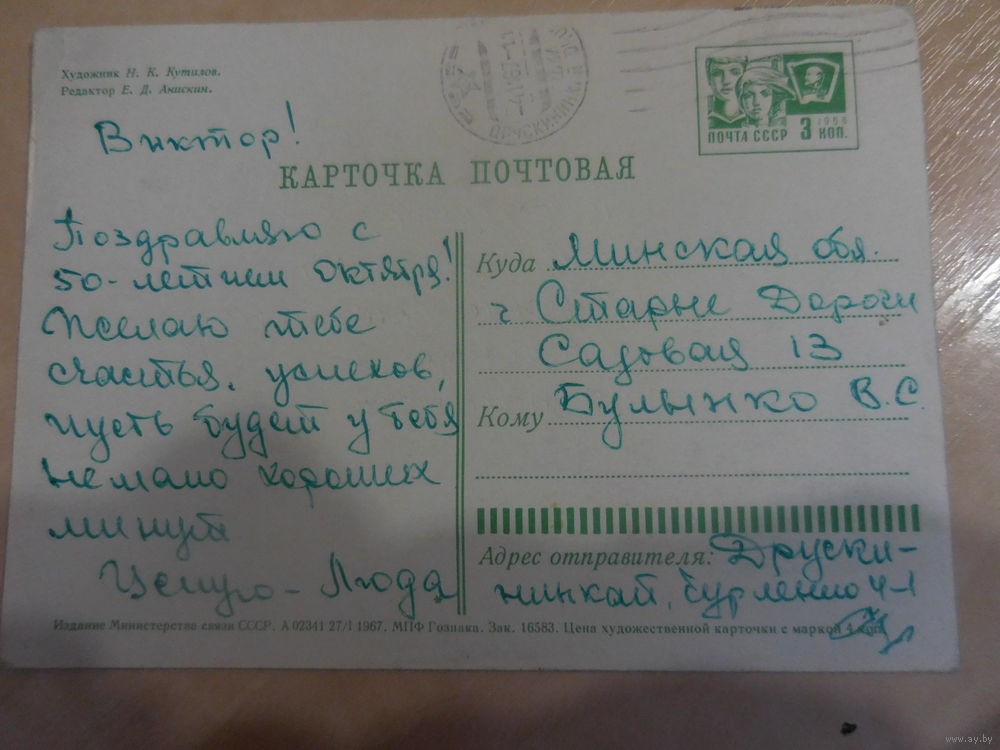 Художник Н. К. Кутилов.
Редактор Е. Д. Анискин.
ДРУСКИНИНК
ПОЧТА СССР 3 КОП.
1966
КАРТОЧКА ПОЧТОВАЯ
Виктор!
Поздравляю с
50-летием Октября!
Желаю тебе
счастья, успехов,
пусть будет у тебя
немало хороших
минут
Целую - Люда
Куда Минская обл.
г Старые Дороги
Садовая 13
Кому Булынко В.С.
Адрес отправителя: Друски-
нинкай, 4-1
Издание Министерства связи СССР. А 02341 27/I 1967. МПФ Гознака. Зак. 16583. Цена художественной карточки с маркой 4 коп.
www.ay.by